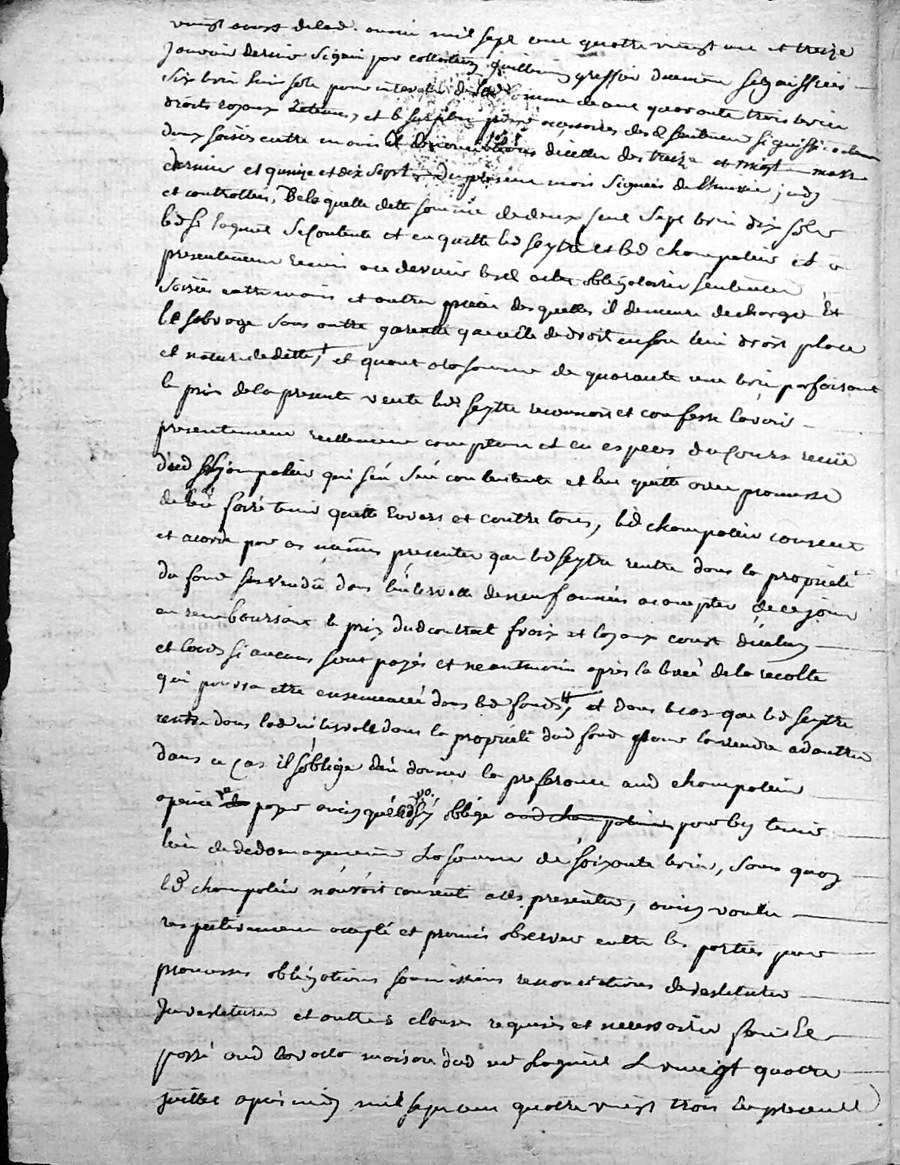 vingt aoust delad. année mil sept cent quatre vingt un et treize
Janvier dernier signée par collation guillaume greffier dûement
six livres huit sols pour interets de lad. somme de cent quarante trois livres
droits royaux retenus, et le surplus pour accessoires des d. sentences
deux saisies entre mains et denonciations dicelles des treize et vingt mars
dernier et quinze et dix sept du present mois signées de
et controllées, De laquelle dette somme de deux cent sept livres dix sols
led. sr. laquil se contente et en quitte led. seytre et led. champolein et a
presentement remis a ce dernier lesd. actes obligatoires sentences
saisies entre mains et autres pieces desquelles il demeure dechargé Et
le subroge sans autre garentie que celle de droit en son lieu droit place
et nature de dette, et quant a la somme de quarante une livre parfaisant
le prix de la presente vente led. seytre reconnoit et confesse l'avoir
presentement reellement comptant et en especes du cours reçüe
dud. champolein qui s'en contente et l'en quitte avec promesse
de l'en faire tenir quitte envers et contre tous, led. champolein consent
et acorde par ces mêmes presentes que led. seytre rentre dans la propriété
du fond sus vendu dans l'intervalle de neuf années a compter de ce jour
en remboursant le prix dud. contrat fraix et loyaux coust d'icelui
et lods si aucuns sont payés et neantmoins après la levée de la recolte
qui pourra etre ensemencée dans led. fonds, et dans le cas que led. seytre
rentre dans led. intervale dans la propriété dud. fond pour le vendre a dautres
dans ce cas il s'oblige d'en donner la preferance aud. champolein
a peine de payer ainsi que led. s'y oblige aud. champolein pour luy tenir
lieu de dedomagement la somme de soixante livres, sans quoy
led. champolein n'auroit consenti a ces presentes, ainsy voulu
respectivement accepté et promis observer entre les parties par
promesses obligations soumissions renonciations devestiture
Investiture et autres clauses requises et necessaires fait et
passé aud. lavalla maison dud. sr. laquil Le vingt quatre
juillet apres midy mil sept cent quatre vingt trois En presence